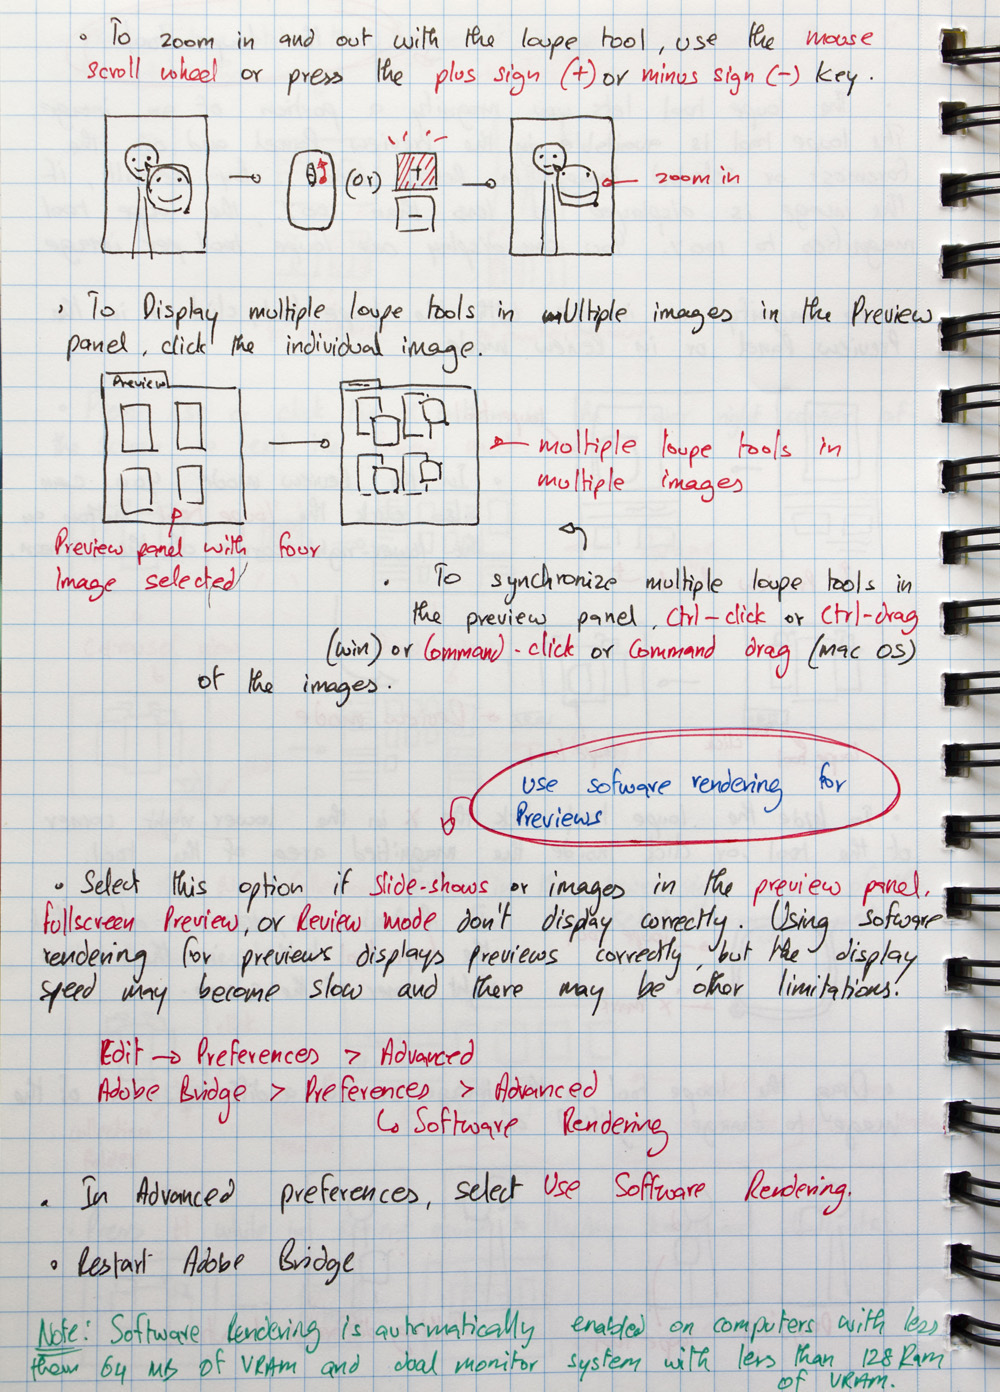 • To zoom in and out with the loupe tool, use the mouse
scroll wheel or press the plus sign (+) or minus sign (-) key.
(or)
+
-
zoom in
• To Display multiple loupe tools in multiple images in the Preview
panel, click the individual image.
Preview
multiple loupe tools in
multiple images
Preview panel with four
Image selected
• To synchronize multiple loupe tools in
the preview panel, Ctrl-click or Ctrl-drag
(win) or Command-click or Command drag (mac OS)
of the images.
Use sofware rendering for
Previews
• Select this option if Slide-shows or images in the preview panel,
fullscreen Preview, or Review mode don't display correctly. Using sofware
rendering for previews displays previews correctly, but the display
speed may become slow and there may be other limitations.
Edit → Preferences > Advanced
Adobe Bridge > Preferences > Advanced
↳ Software Rendering
• In Advanced preferences, select Use Software Rendering.
• Restart Adobe Bridge
Note: Software Rendering is automatically enabled on computers with less
them 64 MB of VRAM and dual monitor system with less than 128 Ram
of VRAM.